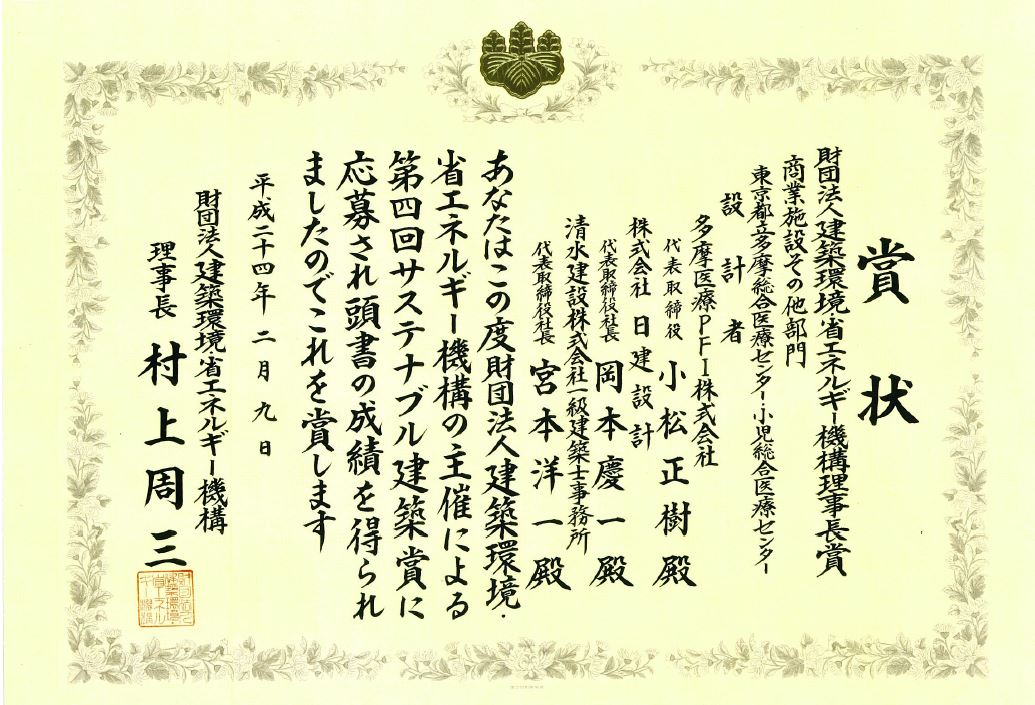 賞状
財団法人建築環境・省エネルギー機構理事長賞
商業施設その他部門
東京都立多摩総合医療センター・小児総合医療センター
設計者
多摩医療PFI株式会社
代表取締役 小松正樹殿
株式会社日建設計
代表取締役社長 岡本慶一殿
清水建設株式会社一級建築士事務所
代表取締役社長 宮本洋一殿
あなたはこの度財団法人建築環境・
省エネルギー機構の主催による
第四回サステナブル建築賞に
応募され頭書の成績を得られ
ましたのでこれを賞します
平成二十四年二月九日
財団法人建築環境・省エネルギー機構
理事長 村上周三